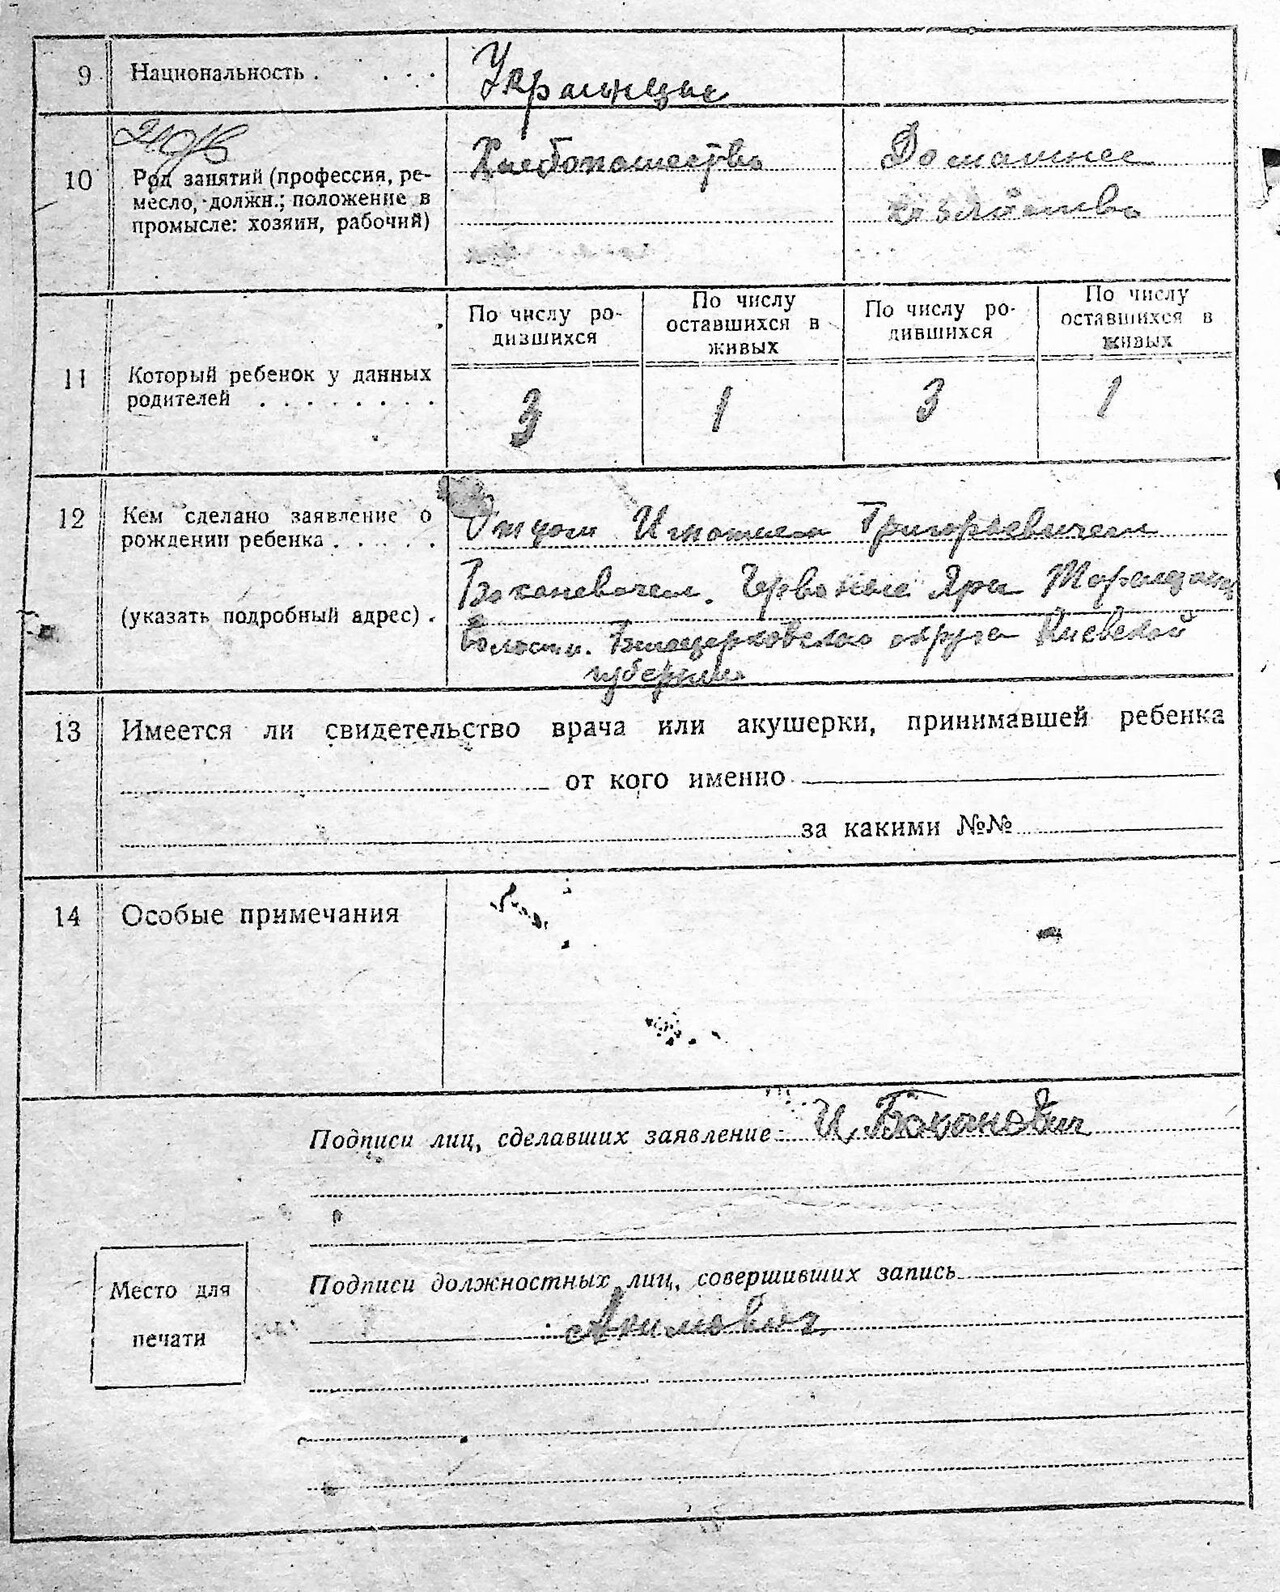 9 Национальность . . . . Украинцы
10 Род занятий (профессия, ре- Хлебопашество Домашнее
месло, должн.; положение в хозяйство
промысле: хозяин, рабочий)
По числу ро- По числу По числу ро- По числу
дившихся оставшихся в дившихся оставшихся в
живых живых
11 Который ребенок у данных 3 1 3 1
родителей . . . . . . . .
12 Кем сделано заявление о Отцом Григорьевичем
рождении ребенка . . . . .
(указать подробный адрес) . Бокановичем. Червоные Яры
Волости. Белоцерковского округа Киевской
губернии
13 Имеется ли свидетельство врача или акушерки, принимавшей ребенка
от кого именно
за какими №№
14 Особые примечания
Подписи лиц, сделавших заявление И. Боканович
Подписи должностных лиц, совершивших запись
Место для
печати Акимович